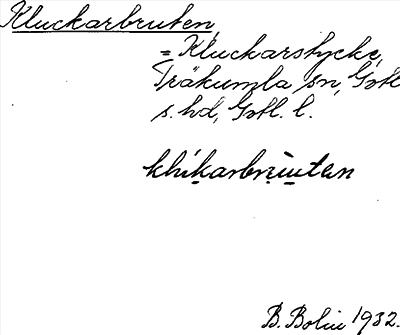 Kluckarbruten,
= Kluckarstycke,
Träkumla sn, Gotl
s. hd, Gotl. l.
klikarbrùutan
B. Bolin 1932.